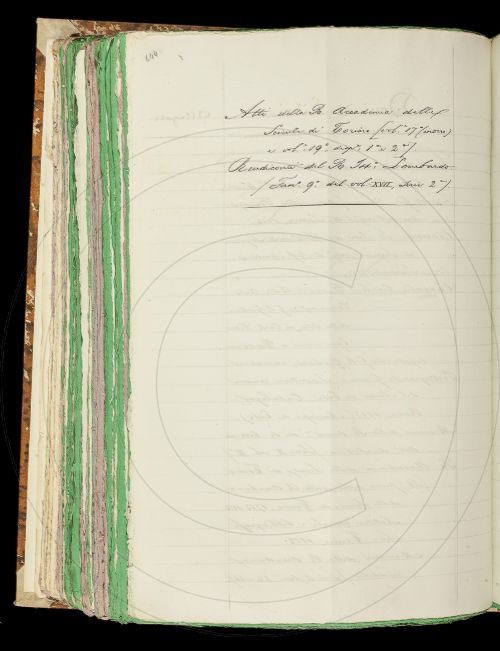 144
Atti della R. Accademia delle
Scienze di Torino (vol. 17º (nono)
e vol. 19º disp. 1ª e 2ª)
Rendiconti del R. Ist. Lombardo
(Fasc. 9º del vol. XVII, Serie 2ª)